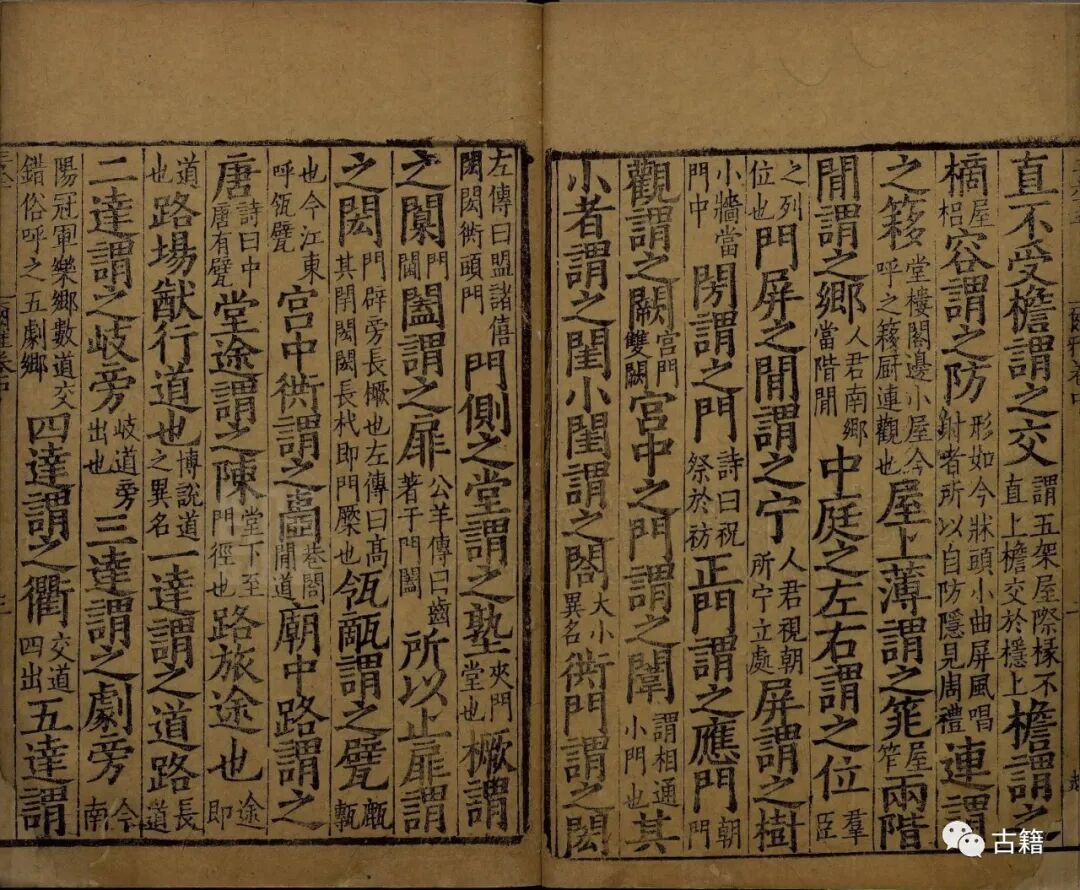 直不受檐謂之交謂五架屋際椽不直上檐交於檼上檐謂之
樀屋梠容謂之防形如今牀頭小曲屏風唱射者所以自防隱見周禮連謂
之簃堂樓閣邊小屋今呼之簃厨連觀也屋上薄謂之筄屋笮兩階
間謂之鄉人君南鄉當階間中庭之左右謂之位羣臣
之列位也門屏之間謂之宁人君視朝所宁立處屏謂之樹
小牆當門中閍謂之門詩曰祝祭於祊正門謂之應門朝門
觀謂之闕宮門雙闕宮中之門謂之闈謂相通小門也其
小者謂之閨小閨謂之閤大小異名衖門謂之閎
左傳曰盟諸僖閎閎衖頭門門側之堂謂之塾夾門堂也橛謂
之闑門閫闔謂之扉公羊傳曰齒著于門闔所以止扉謂
之閎門辟旁長橛也左傳曰高其閈閎閎長杙即門橜也瓴甋謂之甓㼾甎
也今江東呼瓴甓宮中衖謂之壼巷閤間道廟中路謂之
唐詩曰中唐有甓堂途謂之陳堂下至門徑也路旅途也途即
道也路場猷行道也博說道之異名一達謂之道路長道
二達謂之歧旁歧道旁出也三達謂之劇旁今南
陽冠軍樂鄉數道交錯俗呼之五劇鄉四達謂之衢交道四出五達謂
古籍